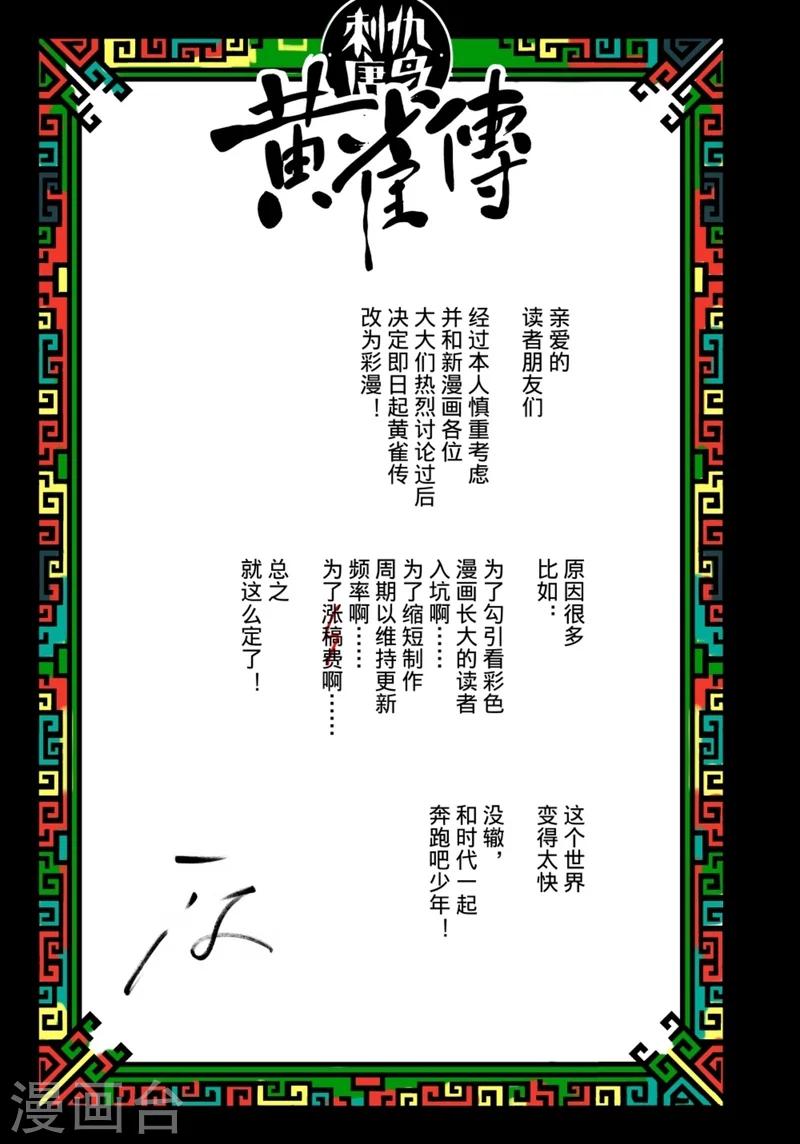 刺仇
唐鸟
黄雀傳
亲爱的
读者朋友们
经过本人慎重考虑
并和新漫画各位
大大们热烈讨论过后
决定即日起黄雀传
改为彩漫！
原因很多
比如：
为了勾引看彩色
漫画长大的读者
入坑啊……
为了缩短制作
周期以维持更新
频率啊……
为了涨稿费啊……
总之
就这么定了！
这个世界
变得太快
没辙，
和时代一起
奔跑吧少年！
漫画台